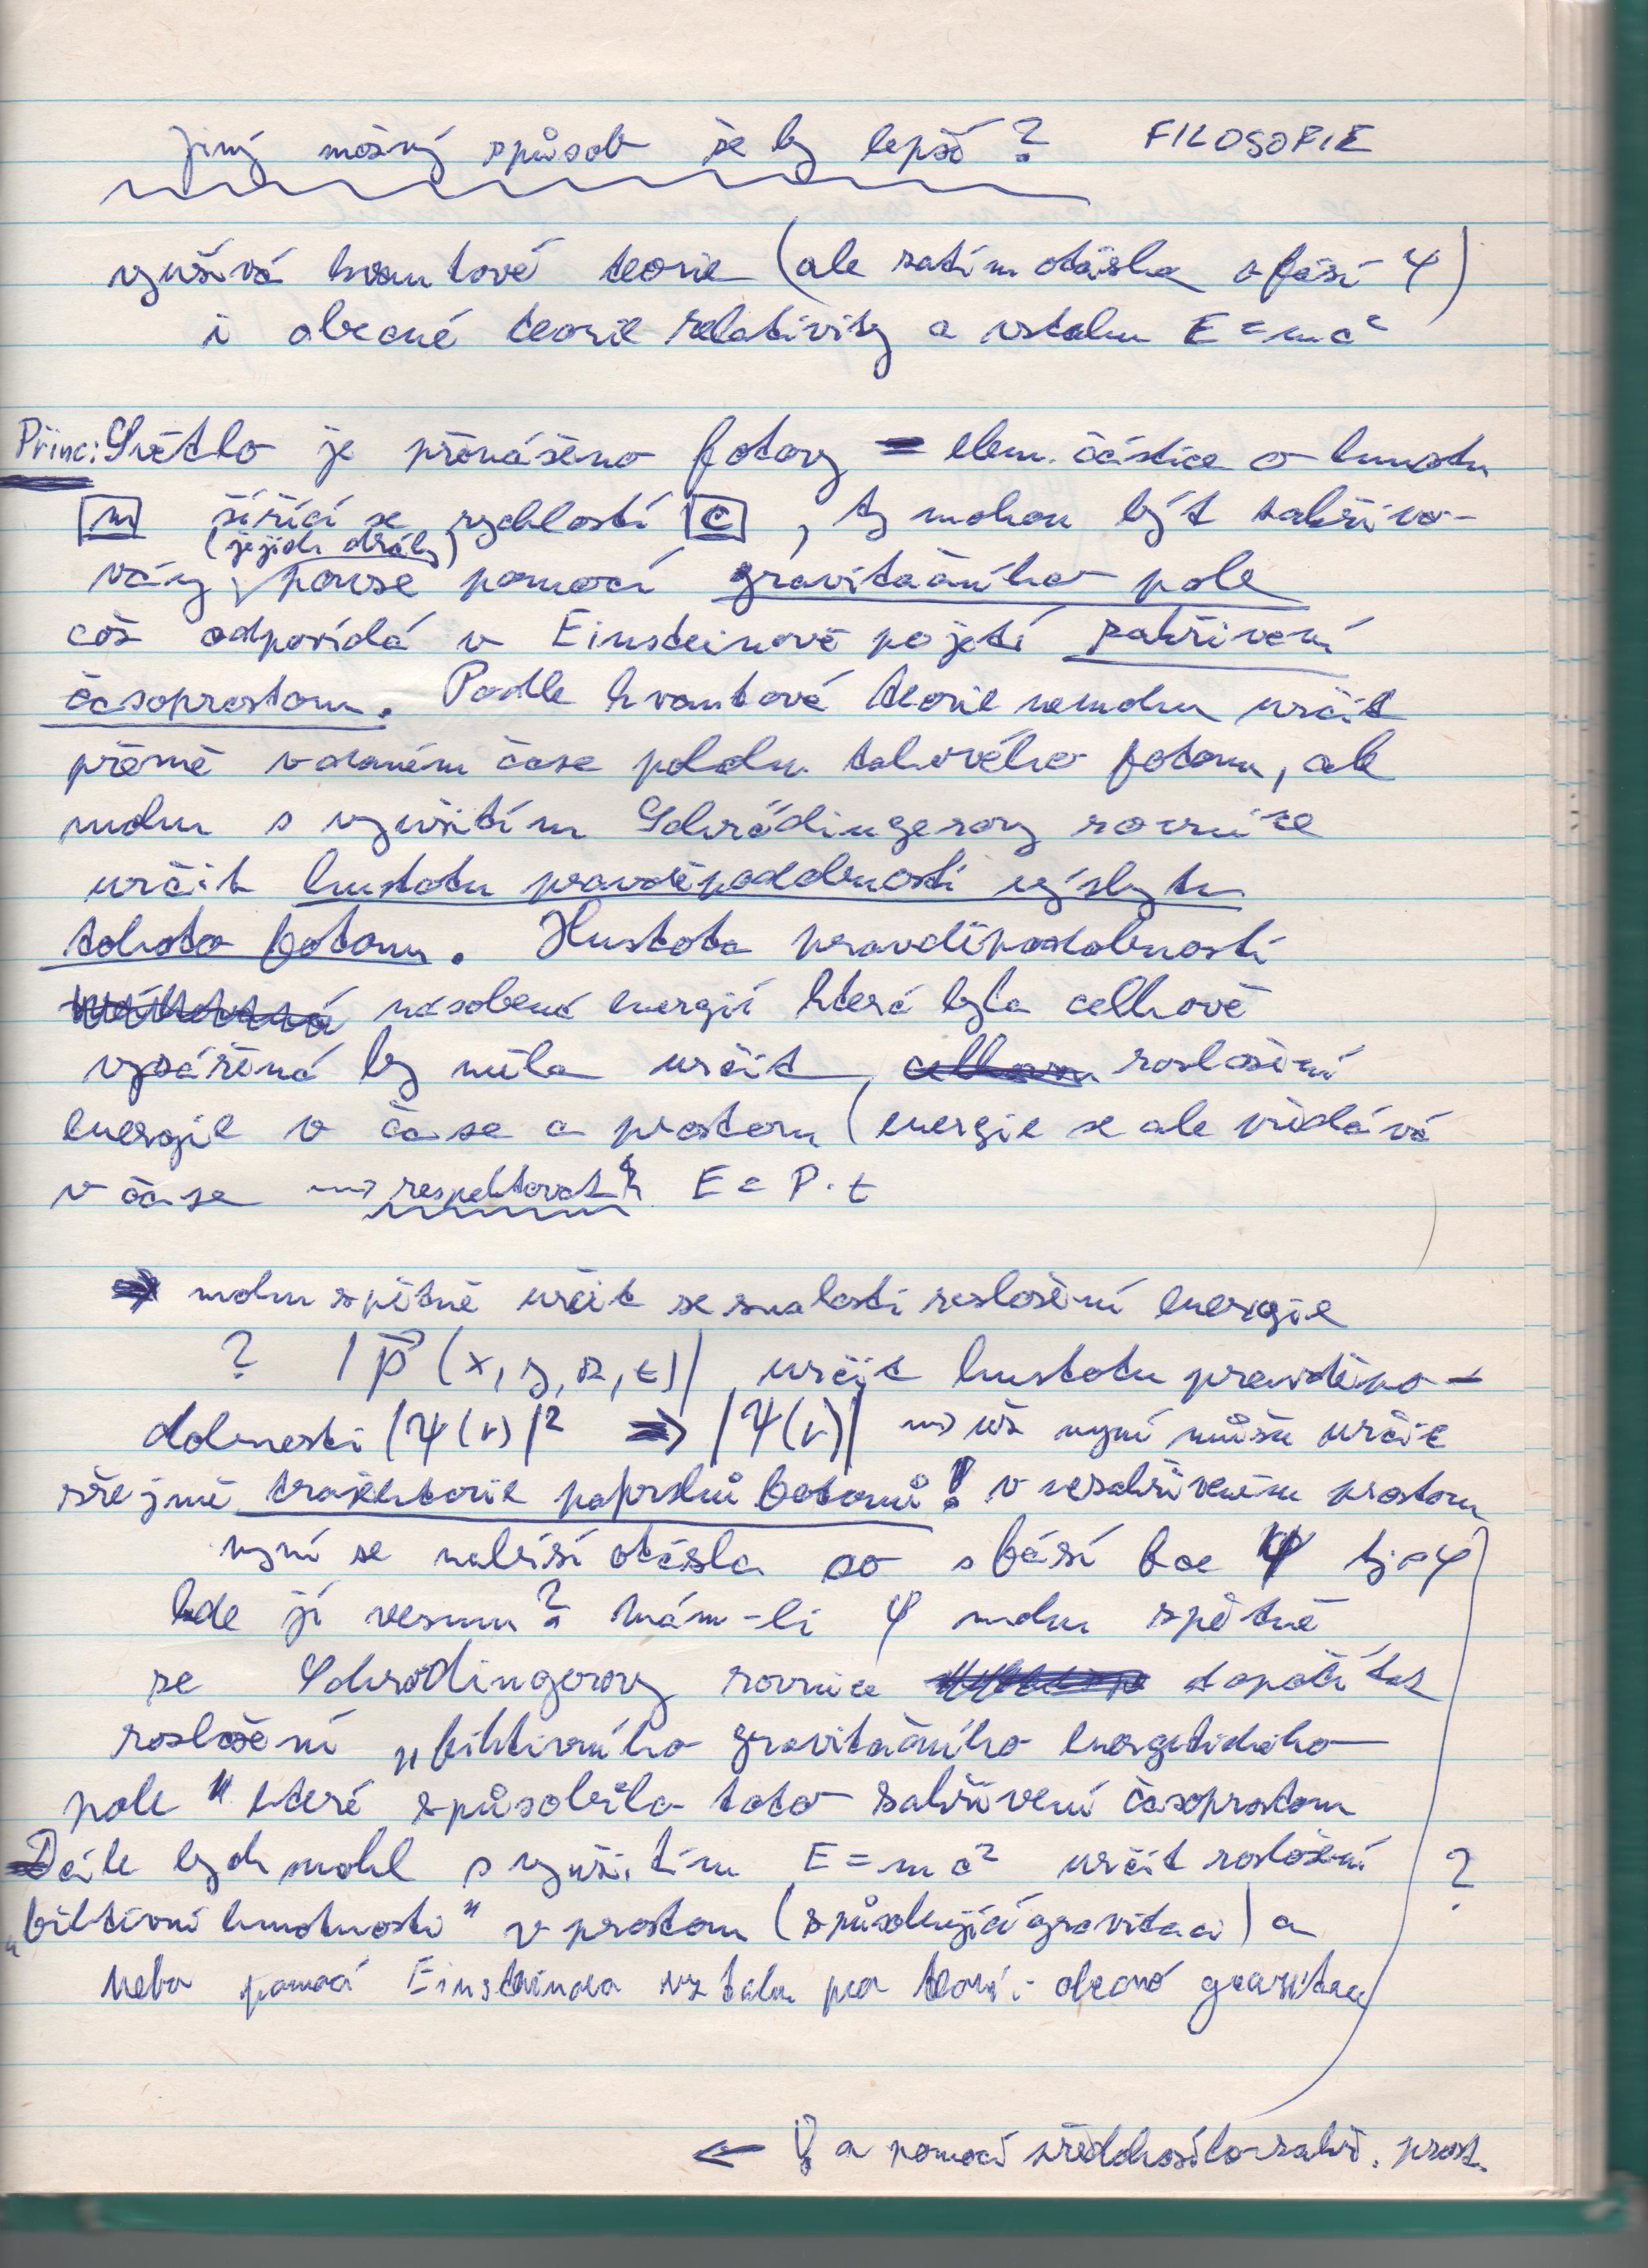 jiný možný způsob že by lepší? FILOSOFIE
využívá kvantové teorie (ale zatím otázka o fázi φ)
i obecné teorie relativity a vztahu E = mc²
Princ: Světlo je přenášeno fotony = elem. částice o hmotn
m šířící se rychlostí c, ty mohou být zakřivo-
(jejich dráhy)
vány pouze pomocí gravitačního pole
což odpovídá v Einsteinově pojetí zakřivení
časoprostoru. Podle kvantové teorie nemohu určit
přesně v daném čase polohu takového fotonu, ale
mohu s využitím Schrödingerovy rovnice
určit hustotu pravděpodobnosti výskytu
tohoto fotonu. Hustota pravděpodobnosti
násobená energií která byla celkově
vyzářená by měla určit, celkovou rozložení
energie v čase a prostoru (energie se ale přidává
v čase ⇝ respektovat! E = P·t
⇒ mohu zpětně určit ze znalosti rozložení energie
? |P⃗(x,y,z,t)| určit hustotu pravděpo-
dobnosti |Ψ(r)|² ⇒ |Ψ(r)| ⇝ už nyní můžu určit
zřejmě trajektorie paprsků fotonů! v nezakřiveném prostoru
nyní se nabízí otázka co s fází fce Ψ tj. φ
kde ji vezmu? Mám-li φ mohu zpětně
ze Schrödingerovy rovnice dopočítat
rozložení „fiktivního gravitačního energetického
pole" které způsobilo toto zakřivení časoprostoru
Dále bych mohl s využitím E = mc² určit rozložení ?
„fiktivní hmotnosti" v prostoru (způsobující gravitaci) a
nebo pomocí Einsteinova vztahu pro teorii obecné gravitace
← a pomocí zakř. prost.